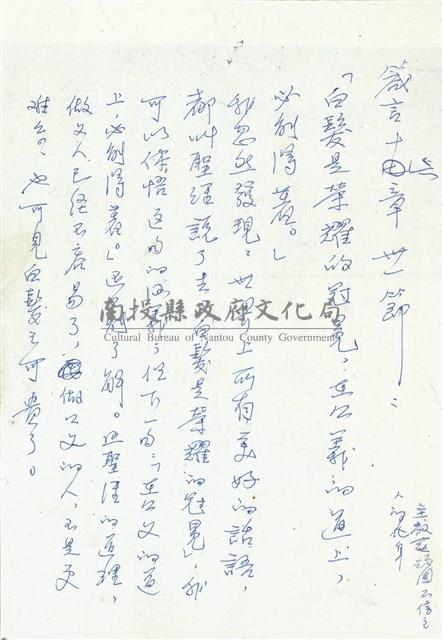 箴言十章卅一節：
「白髮是榮耀的冠冕，在公義的道上，
必能得着。」
我忽然發現：世界上所有美好的話語，
都叫聖經說了去「白髮是榮耀的冠冕」，我
可以領悟這句的；但下一句「在公义的道
上，必能得着。」了解。聖經的道理，
做义人已經不容易了，做公义的人，不是更
难么？也可見白髮之可貴了。
南投縣政府文化局
Cultural Bureau of Nantou County Government